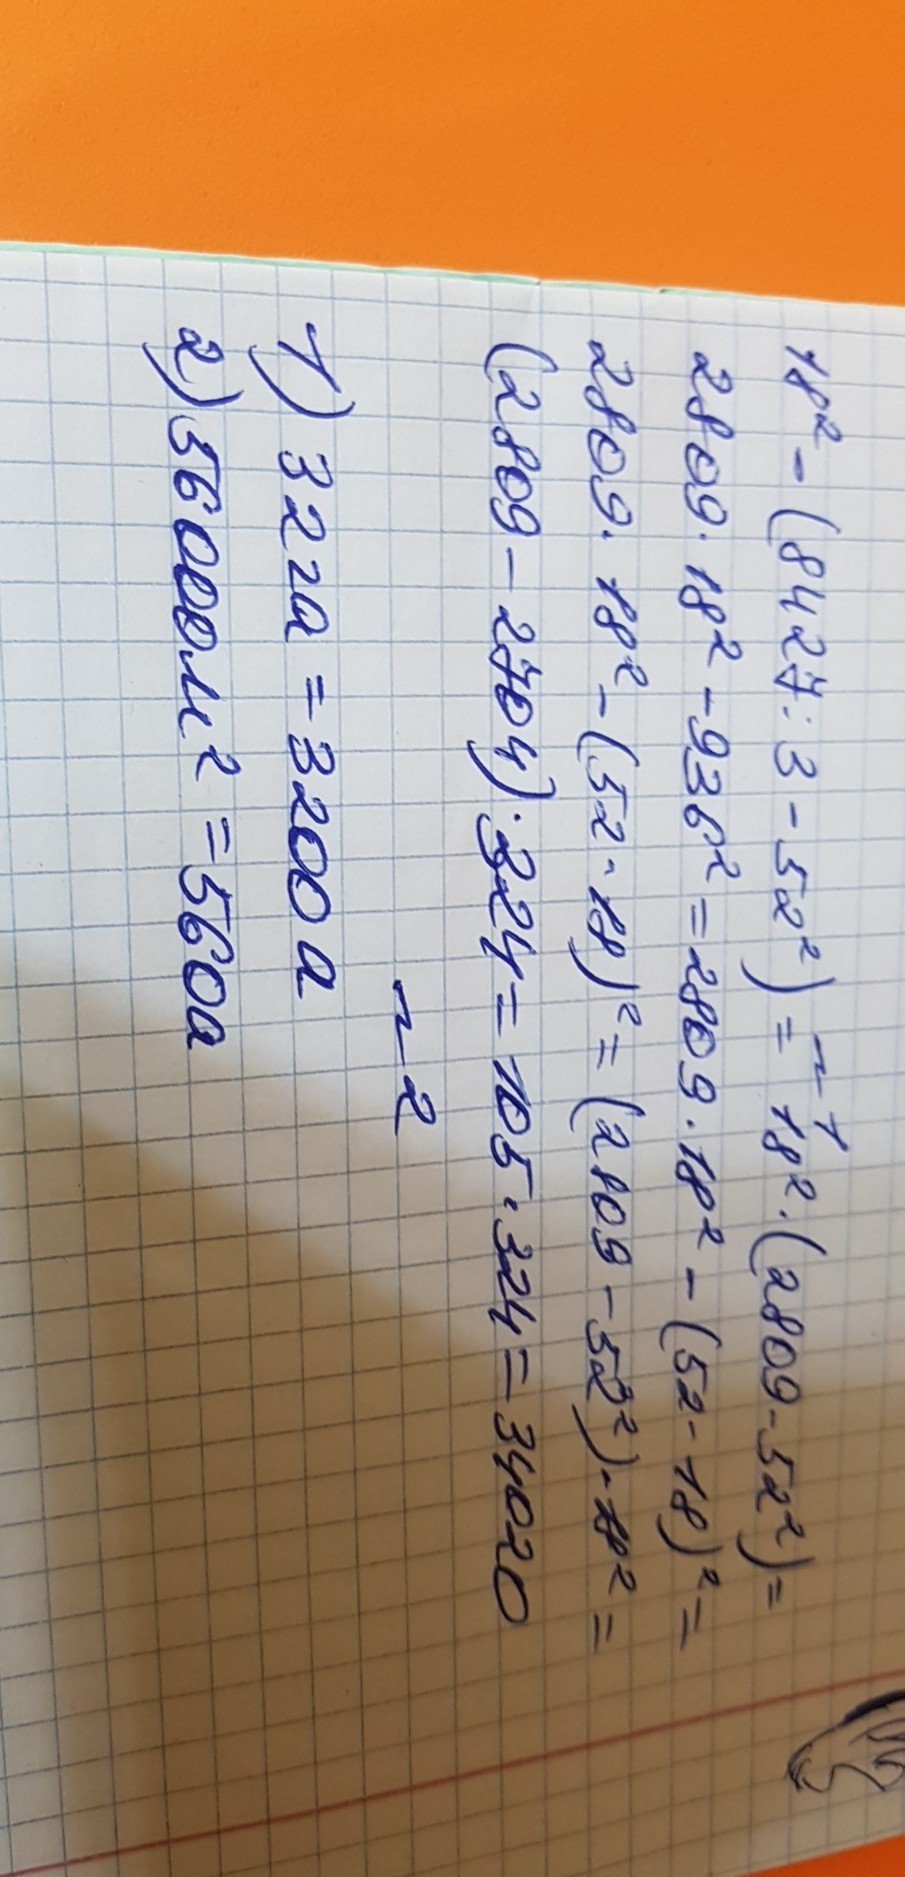 ~ 1
18² - (8427 : 3 - 52²) = 18² · (2809 - 52²) =
2809 · 18² - 936² = 2809 · 18² - (52 - 18)² =
2809 · 18² - (52 · 18)² = (2809 - 52²) · 18² =
(2809 - 2704) · 324 = 105 · 324 = 34020
~ 2
1) 32 га = 3200 а
2) 56000м² = 560а